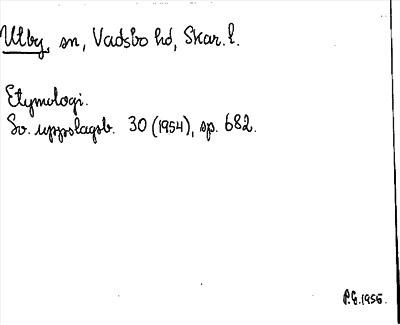 Utby, sn, Vadsbo hd, Skar. l.
Etymologi.
Sv. uppslagsb. 30 (1954), sp. 682.
P.G. 1956.